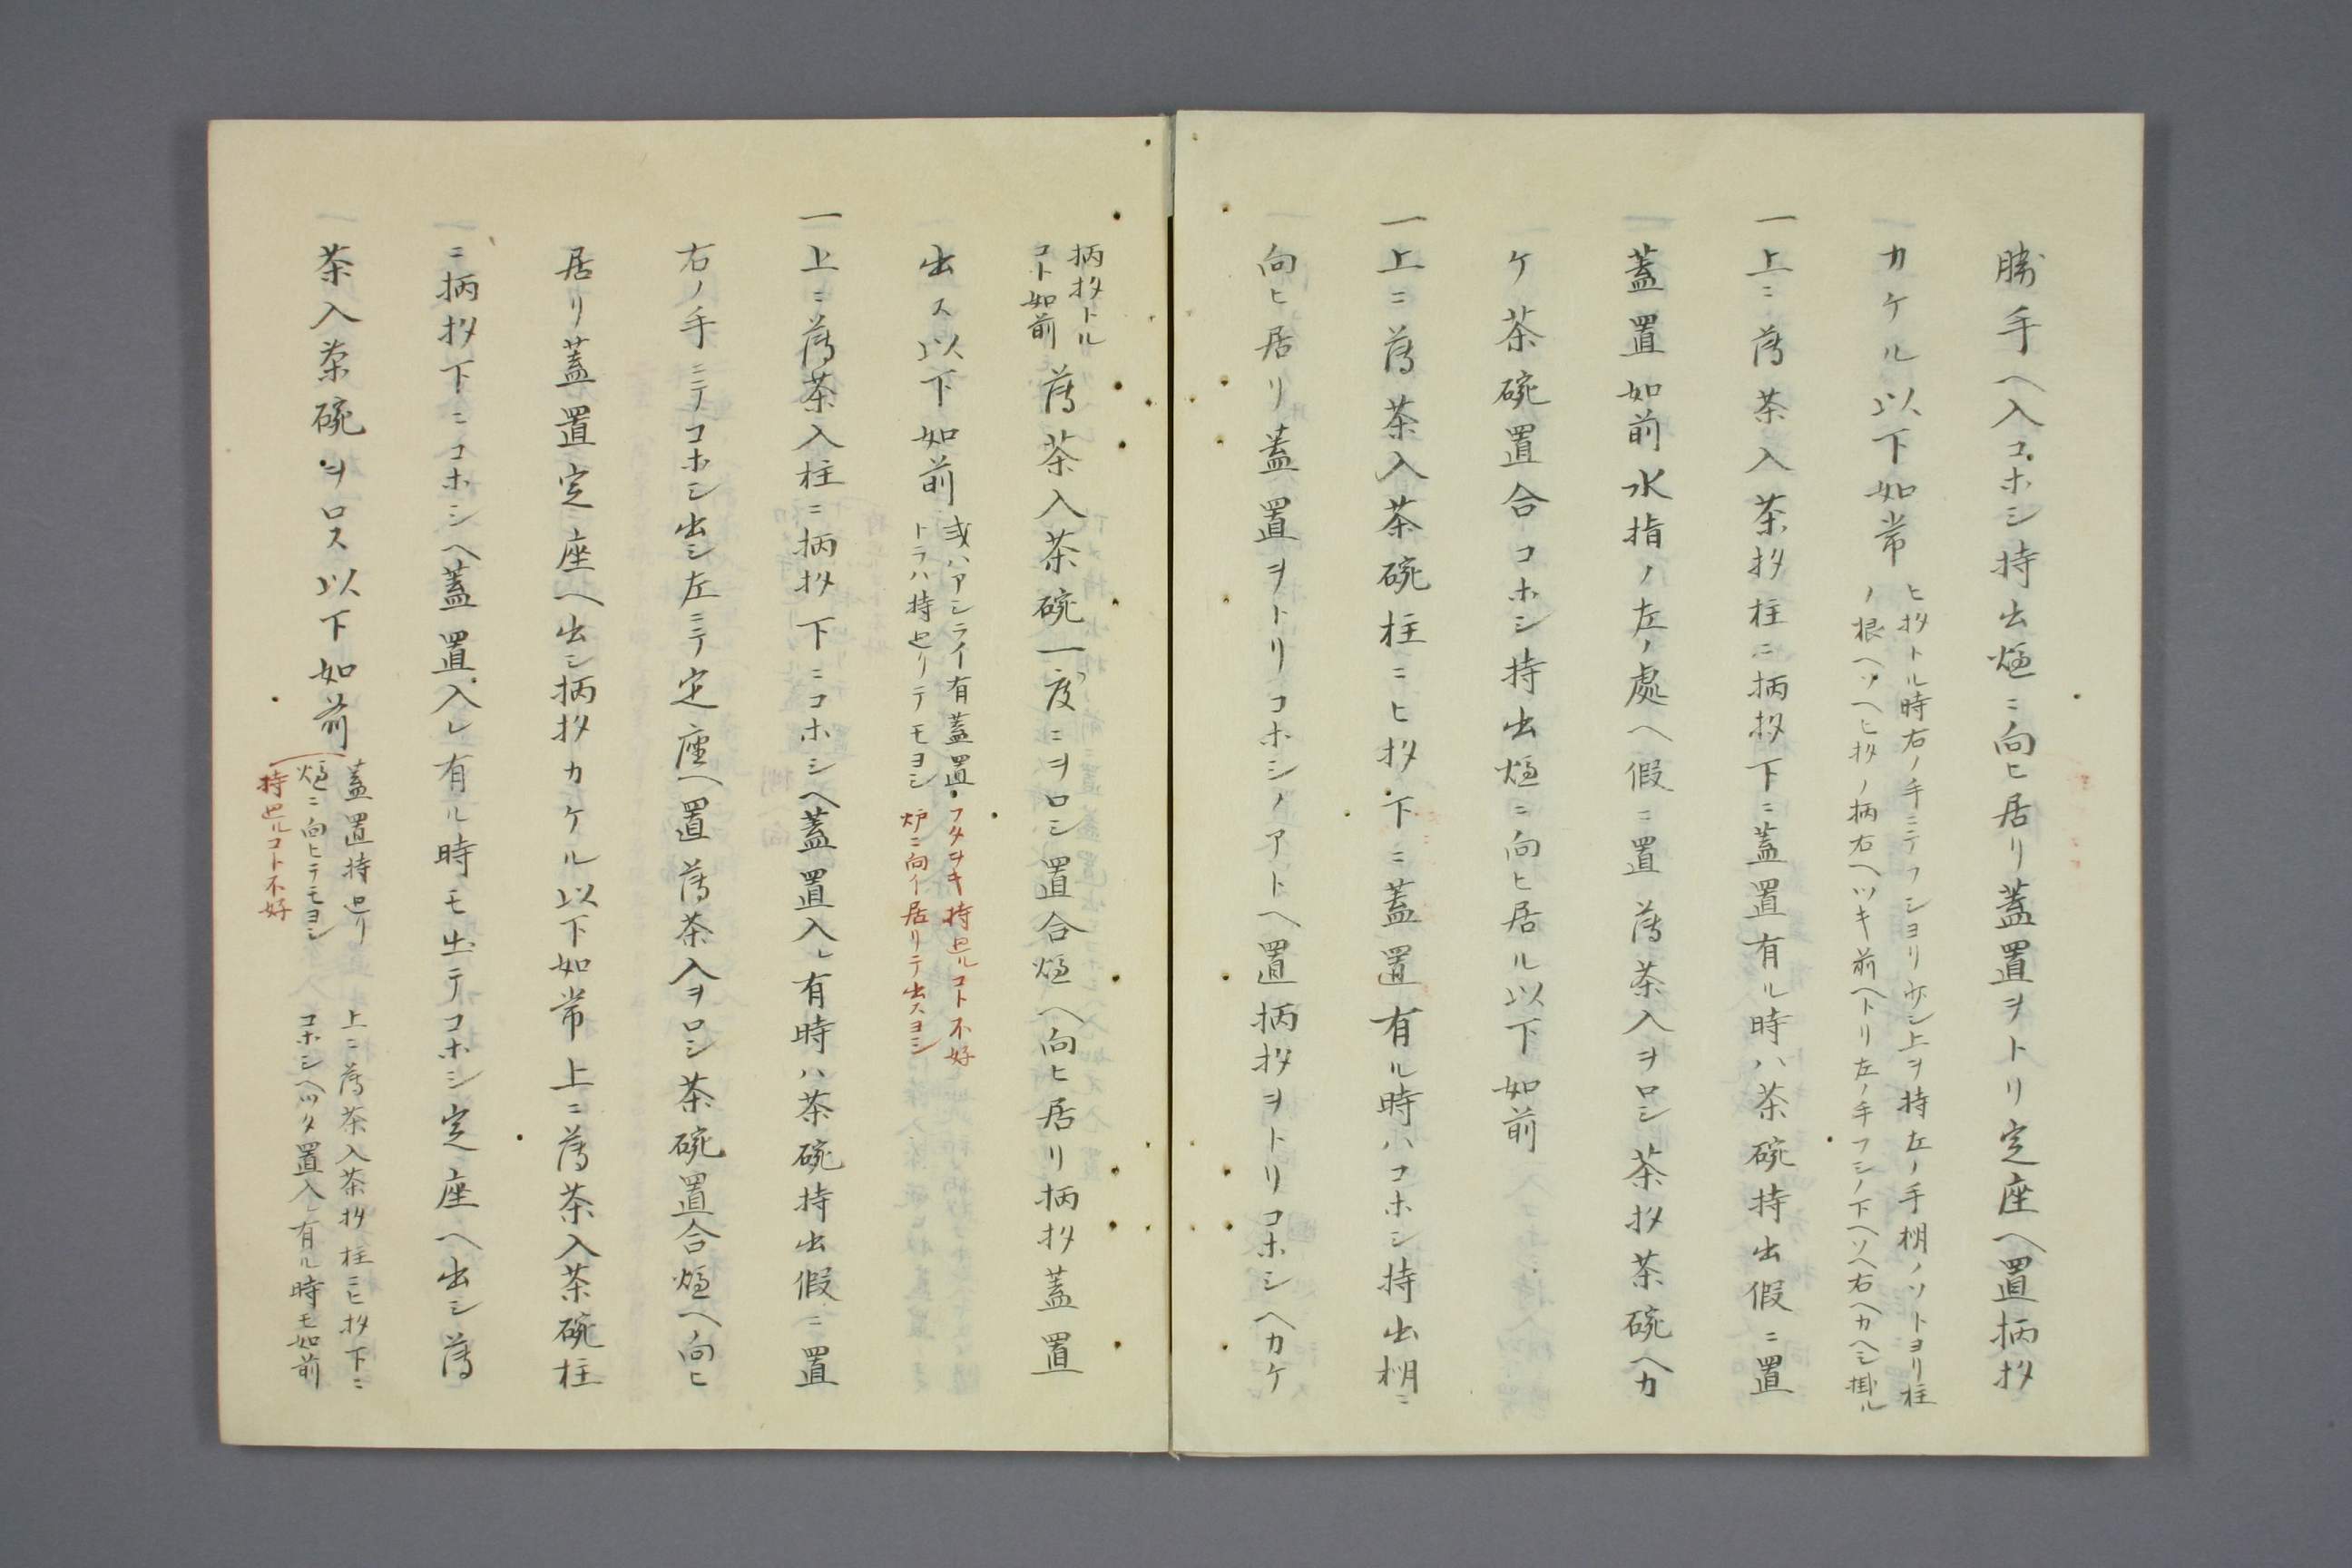 勝手ヘ入コホシ持出爐ニ向ヒ居リ蓋置ヲトリ定座ヘ置柄杓
カケル以下如常
ヒ杓トル時右ノ手ニテフシヨリ少シ上ヲ持左ノ手棚ノソトヨリ柱
ノ根ヘソヘヒ杓ノ柄右ヘツキ前ヘトリ左ノ手フシノ下ヘソヘ右ヘカヘシ掛ル
一上ニ薄茶入茶杓柱ニ柄杓下ニ蓋置有ル時ハ茶碗持出假ニ置
蓋置如前水指ノ左ノ處ヘ假ニ置薄茶入ヲロシ茶杓茶碗ヘカ
ケ茶碗置合コホシ持出爐ニ向ヒ居ル以下如前
一上ニ薄茶入茶碗柱ニヒ杓下ニ蓋置有ル時ハコホシ持出棚ニ
向ヒ居リ蓋置ヲトリコホシノアトヘ置柄杓ヲトリコホシヘカケ
柄杓トル
コト如前
薄茶入茶碗一度ニヲロシ置合爐ヘ向ヒ居リ柄杓蓋置
出ス以下如前
或ハアシライ有蓋置フタヲキ持廻ルコト不好
トラハ持廻リテモヨシ炉ニ向イ居リテ出スヨシ
一上ニ薄茶入柱ニ柄杓下ニコホシヘ蓋置入レ有時ハ茶碗持出假ニ置
右ノ手ニテコホシ出シ左ニテ定座ヘ置薄茶入ヲロシ茶碗置合爐ヘ向ヒ
居リ蓋置定座ヘ出シ柄杓カケル以下如常上ニ薄茶入茶碗柱
ニ柄杓下ニコホシヘ蓋置入レ有ル時モ出テコホシ定座ヘ出シ薄
茶入茶碗ヲロス以下如前
蓋置持廻リ
爐ニ向ヒテモヨシ
持廻ルコト不好
上ニ薄茶入茶杓柱ニヒ杓下ニ
コホシヘツタ置入レ有ル時モ如前